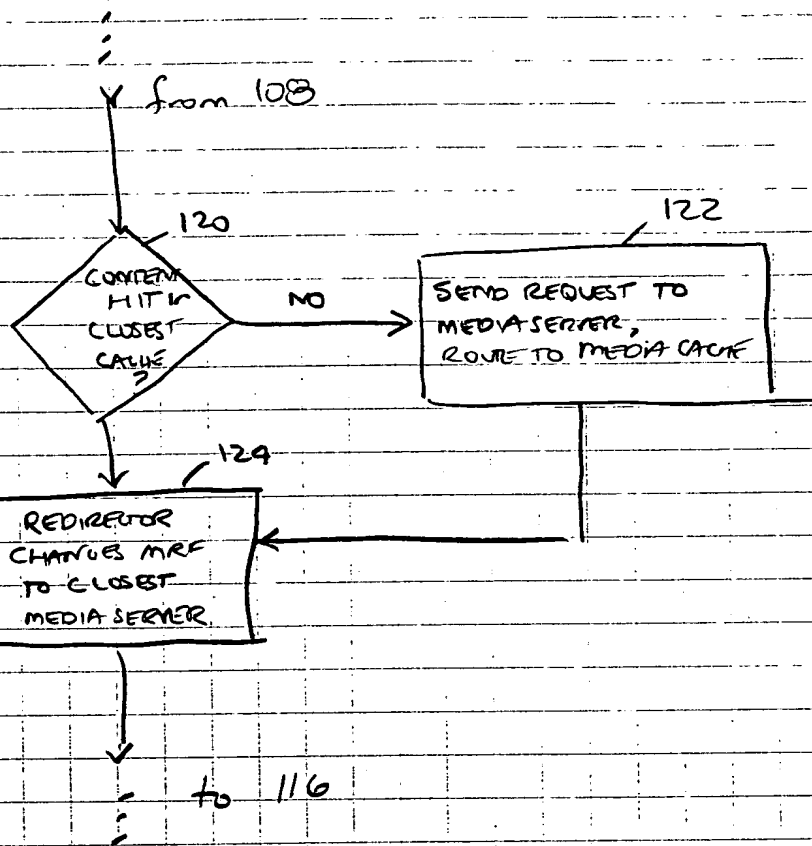 from 108
120
CONTENT
HIT IN
CLOSEST
CACHE
?
NO
122
SEND REQUEST TO
MEDIA SERVER,
ROUTE TO MEDIA CACHE
124
REDIRECTOR
CHANGES MRF
TO CLOSEST
MEDIA SERVER
to 116